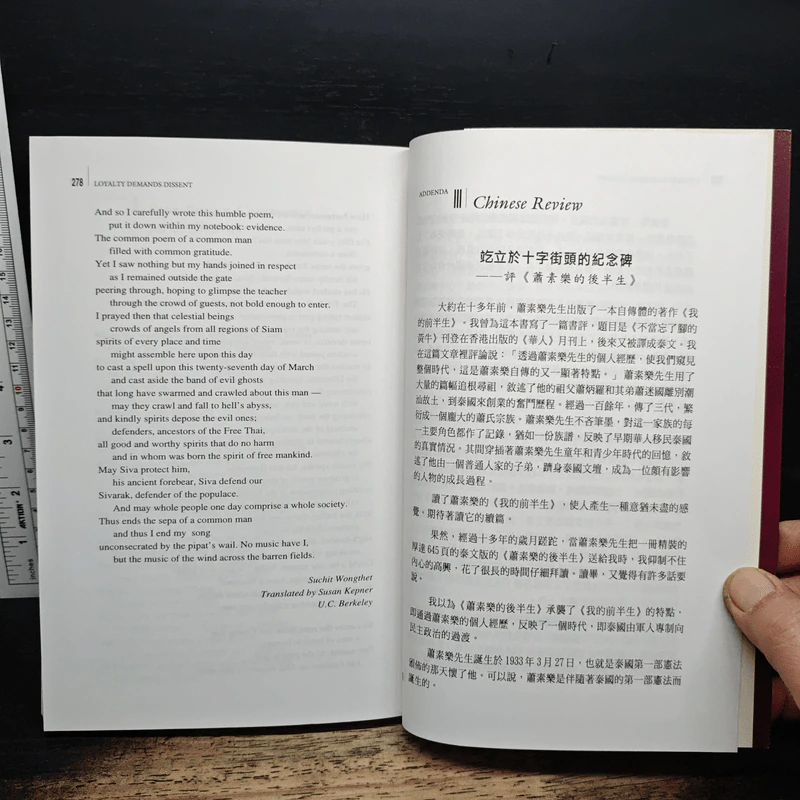 278
LOYALTY DEMANDS DISSENT
And so I carefully wrote this humble poem,
put it down within my notebook: evidence.
The common poem of a common man
filled with common gratitude.
Yet I saw nothing but my hands joined in respect
as I remained outside the gate
peering through, hoping to glimpse the teacher
through the crowd of guests, not bold enough to enter.
I prayed then that celestial beings
crowds of angels from all regions of Siam
spirits of every place and time
might assemble here upon this day
to cast a spell upon this twenty-seventh day of March
and cast aside the band of evil ghosts
that long have swarmed and crawled about this man —
may they crawl and fall to hell's abyss,
and kindly spirits depose the evil ones;
defenders, ancestors of the Free Thai,
all good and worthy spirits that do no harm
and in whom was born the spirit of free mankind.
May Siva protect him,
his ancient forebear, Siva defend our
Sivarak, defender of the populace.
And may whole people one day comprise a whole society.
Thus ends the sepa of a common man
and thus I end my song
unconsecrated by the pipat's wail. No music have I,
but the music of the wind across the barren fields.
Suchit Wongthet
Translated by Susan Kepner
U.C. Berkeley
ADDENDA III Chinese Review
屹立於十字街頭的紀念碑
——評《蕭素樂的後半生》
大約在十多年前，蕭素樂先生出版了一本自傳體的著作《我
的前半生》。我曾為這本書寫了一篇書評，題目是《不當忘了腳的
黃牛》刊登在香港出版的《華人》月刊上，後來又被譯成泰文。我
在這篇文章裡評論說：「透過蕭素樂先生的個人經歷，使我們窺見
整個時代，這是蕭素樂自傳的又一顯著特點。」蕭素樂先生用了
大量的篇幅追根尋祖，敘述了他的祖父蕭炳羅和其弟蕭迷國離別潮
汕故土，到泰國來創業的奮鬥歷程。經過一百餘年，傳了三代，繁
衍成一個龐大的蕭氏宗族。蕭素樂先生不吝筆墨，對這一家族的每
一主要角色都作了記錄，猶如一份族譜，反映了早期華人移民泰國
的真實情況。其間穿插著蕭素樂先生童年和青少年時代的回憶，敘
述了他由一個普通人家的子弟，躋身泰國文壇，成為一位頗有影響
的人物的成長過程。
讀了蕭素樂的《我的前半生》，使人產生一種意猶未盡的感
覺，期待著讀它的續篇。
果然，經過十多年的歲月蹉跎，當蕭素樂先生把一冊精裝的
厚達645頁的泰文版的《蕭素樂的後半生》送給我時，我仰制不住
內心的高興，花了很長的時間仔細拜讀。讀畢，又覺得有許多話要
說。
我以為《蕭素樂的後半生》承襲了《我的前半生》的特點，
即通過蕭素樂的個人經歷，反映了一個時代，即泰國由軍人專制向
民主政治的過渡。
蕭素樂先生誕生於1933年3月27日，也就是泰國第一部憲法
頒佈的那天懷了他。可以說，蕭素樂是伴隨著泰國的第一部憲法而
誕生的。